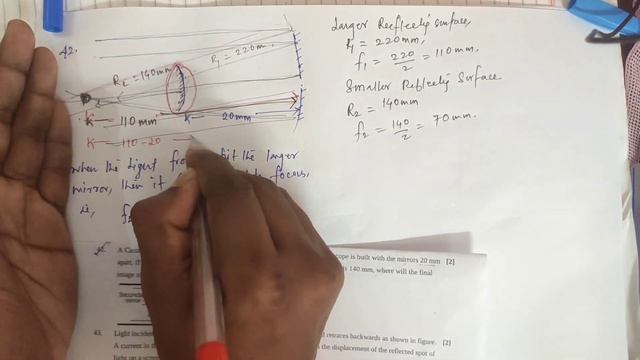 42.
R₂ = 140mm
R₁ = 220m
110mm
20mm
110-20
when the light from hit the larger
mirror, then it focus,
ie, f₂
Larger Reflecting surface,
R₁ = 220mm,
f₁ = 220/2 = 110mm.
Smaller Reflecting Surface
R₂ = 140mm
f₂ = 140/2 = 70mm.
42.
A Cass cope is built with the mirrors 20 mm [2]
apart. is 140 mm, where will the final
image
43. Light inciden retraces backwards as shown in figure. [2]
A current in the the displacement of the reflected spot of
light on a scree